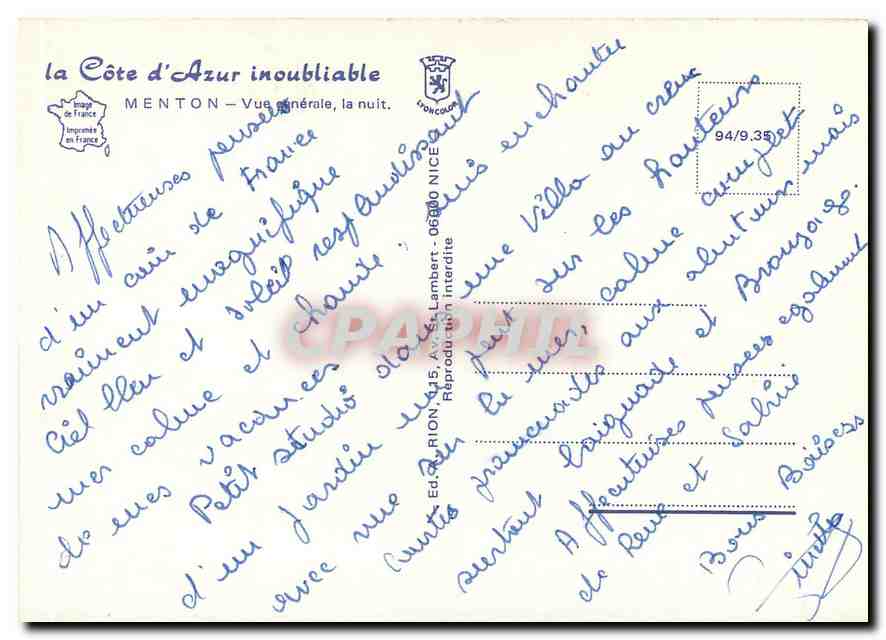 la Côte d'Azur inoubliable
MENTON – Vue générale, la nuit.
Image
de France
Imprimée
en France
LYONCOLOR
94/9.35
Ed. RION, 15, Av. St. Lambert - 06000 NICE
Reproduction interdite
CPAPHIL
Affectueuses pensées
d'un coin de France
vraiment magnifique
Ciel bleu et soleil resplandissant
mer calme et chaude. suis enchantée
de mes vacances
Petit studio dans une Villa au creux
d'un jardin un peu sur les hauteurs
avec vue sur la mer, calme complet
Courtes promenades aux alentours mais
surtout baignade et Bronzage.
Affectueuses pensées également
de René et Sabine
Bons Baisers